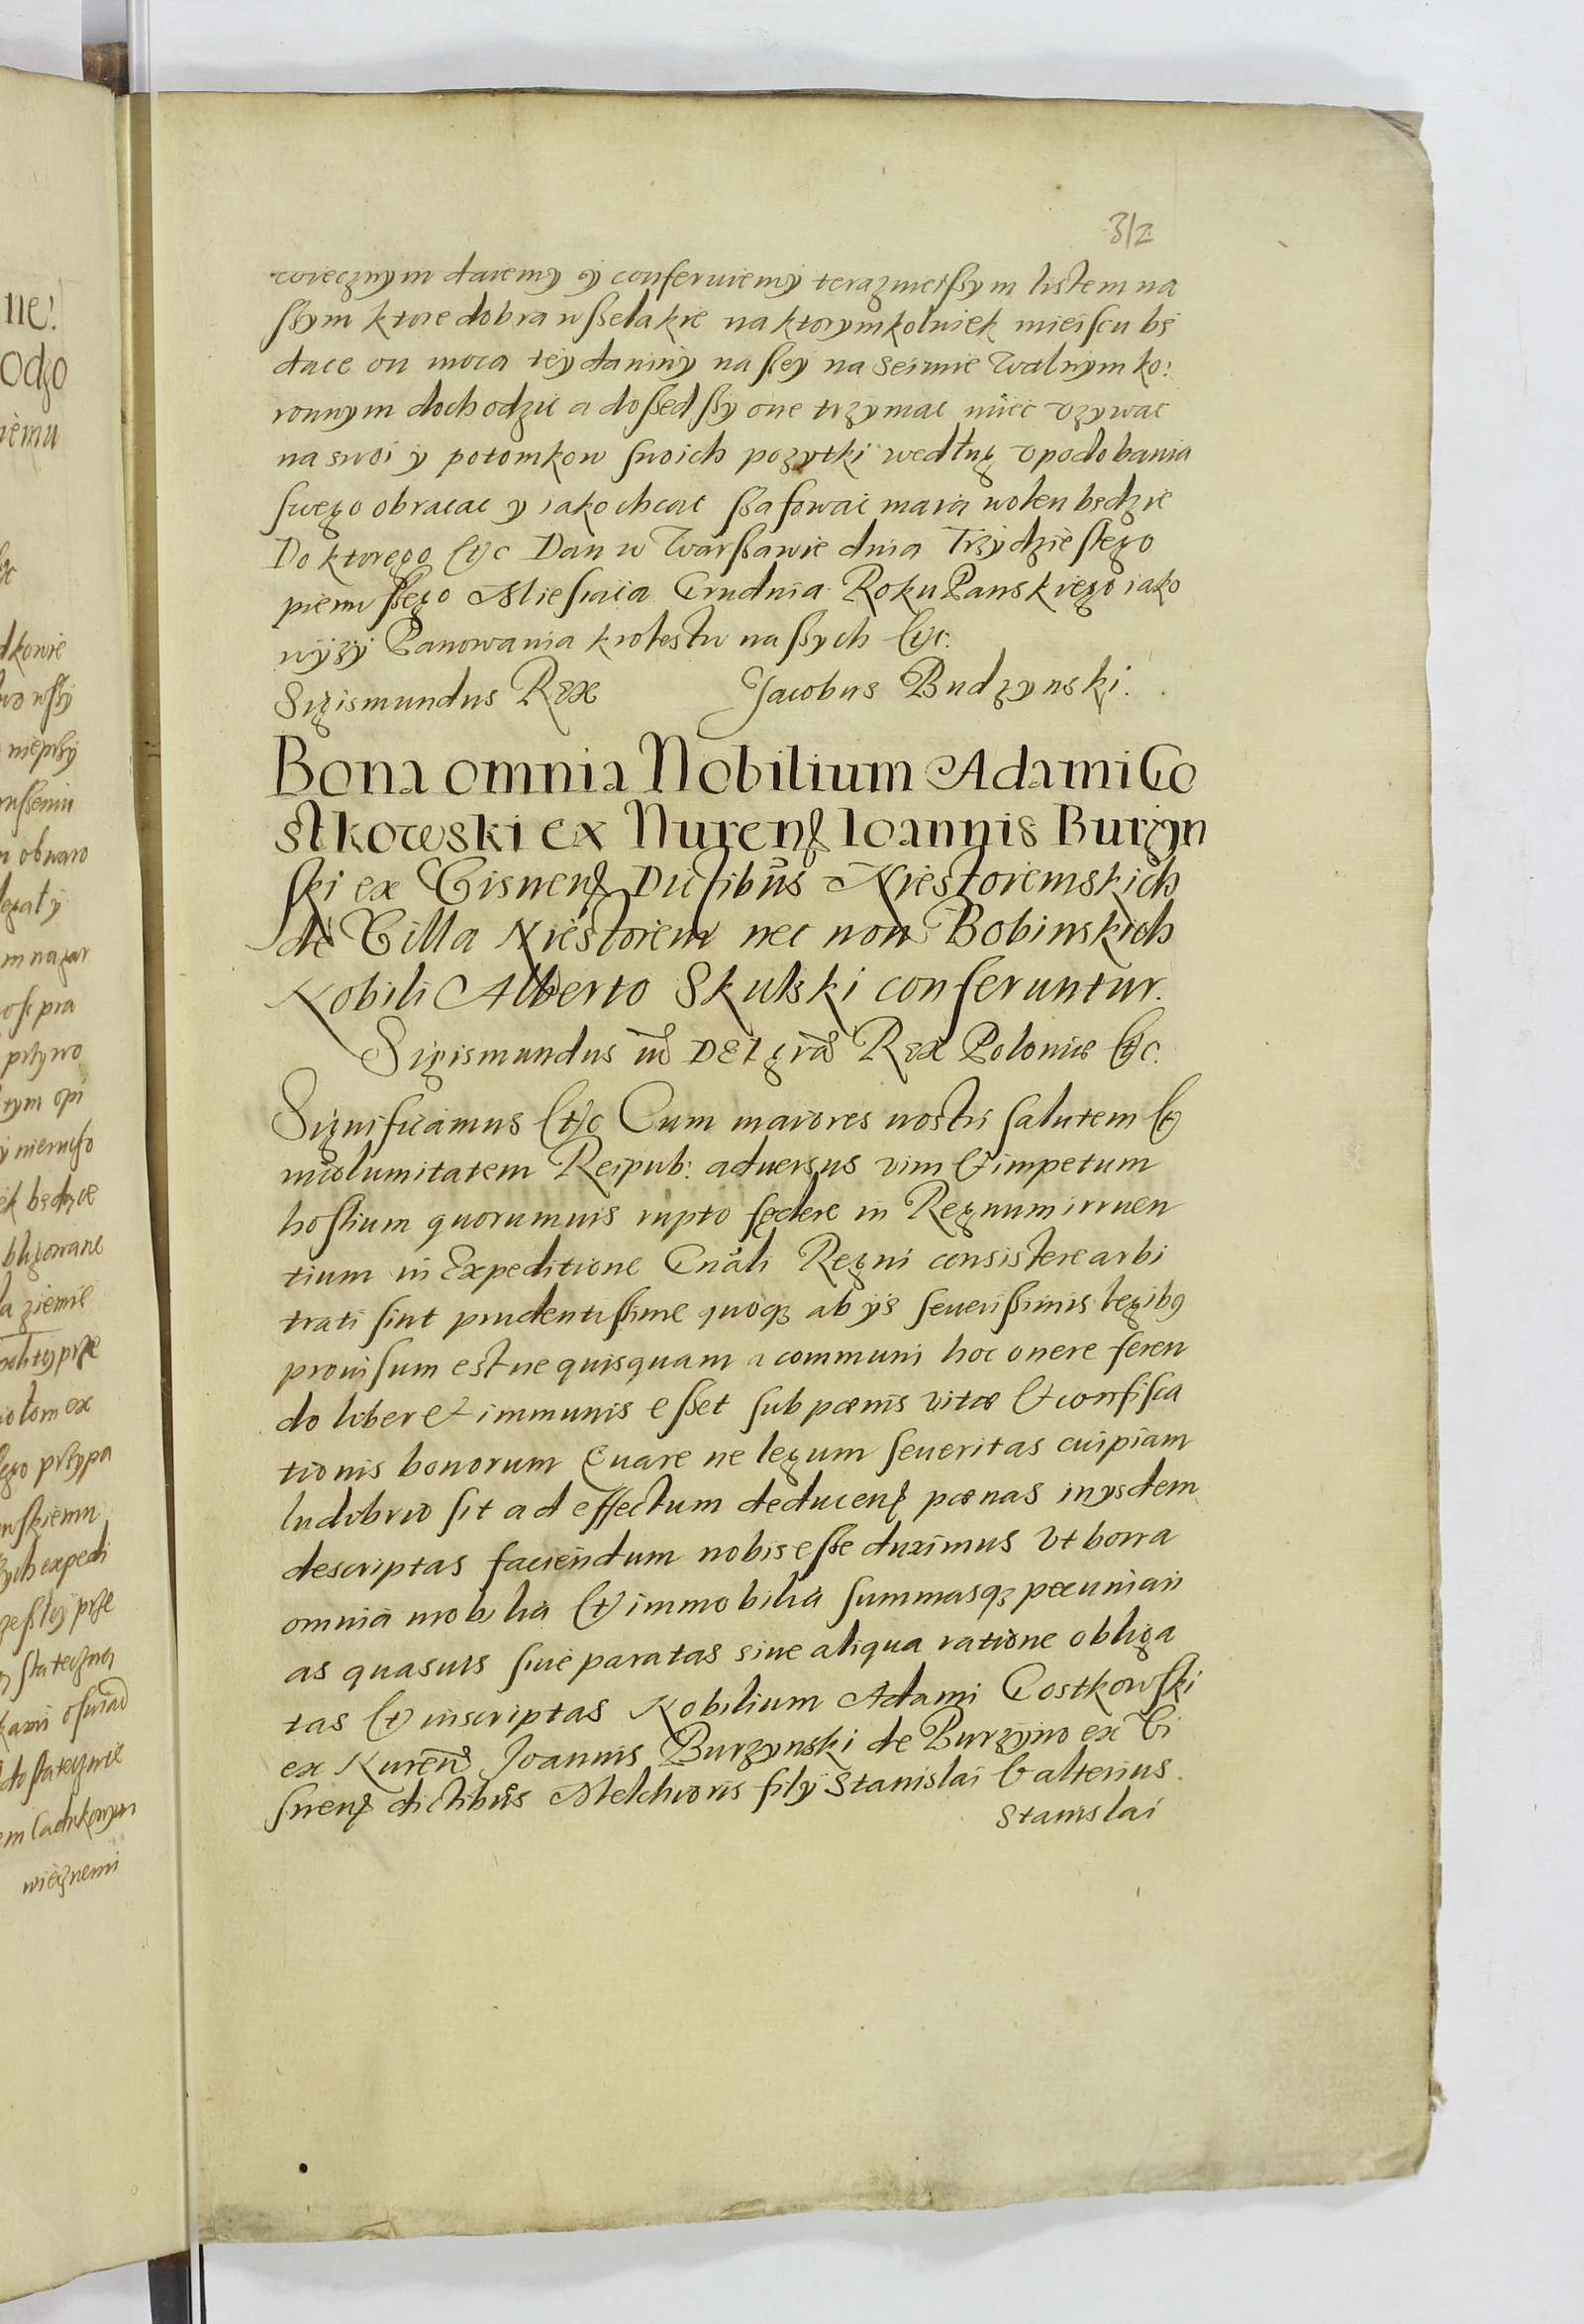 312
coviecznym daiemy y conferuiemy teraznieissym listem na
ssym ktore dobra wsselakie na ktorymkolwiek mieiscu bę
dące on mocą tey daniny nassey na Seimie Walnym ko:
ronnym dochodzic a dossedssy one trzymac miec vzywac
na swoi y potomkow swoich pozytki według vpodobania
swego obracac y iako chcąc ssafowac maią wolen będzie
Do ktorego &c Dan w Warssawie dnia Trzydziestego
pierwssego Miesiąca Grudnia Roku Panskiego iako
wyzy Panowania krolestw nassych &c.
Sigismundus Rex Jacobus Budzynski.
Bona omnia Nobilium Adami Go
stkowski ex Nurenſ Ioannis Burzyn
ski ex Visnenſ Dictibus Niestoiemskich
de Villa Niestoiem nec non Bobinskich
Nobili Alberto Skulski conferuntur.
Sigismundus iii DEI gra Rex Polonie &c.
Significamus &c Cum maiores nostri salutem &
incolumitatem Reipub: aduersus vim & impetum
hostium quorumuis rupto fędere in Regnum irruen
tium in Expeditione Gnali Regni consistere arbi
trati sint prudentissime quoq; ab ijs seuerissimis legibq
prouisum est ne quisquam a communi hoc onere feren
do liber & immunis esset sub pœnis vitæ & confisca
tionis bonorum Quare ne legum seueritas cuipiam
ludibrio sit ad effectum deducenſ pœnas in ysdem
descriptas faciendum nobis esse duximus Vt bona
omnia mobilia & immobilia summasq; pecuniari
as quasuis siue paratas siue aliqua ratione obliga
tas & inscriptas Nobilium Adami Gostkowski
ex Nuren Joannis Burzynski de Burzyno ex Vi
snenſ dictibus Melchioris filÿ Stanislai & alterius
Stanislai